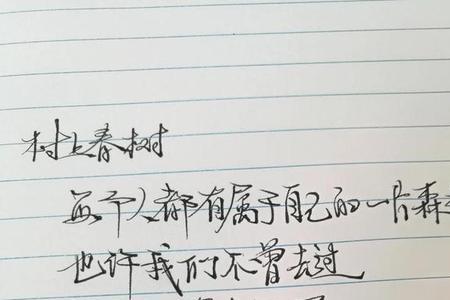 村上春树
每个人都有属于自己的一片森
也许我们不曾去过